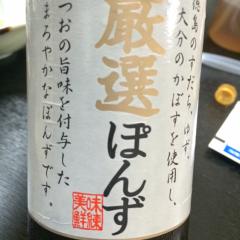 徳島のすだち、ゆず、
大分のかぼすを使用し、
厳選
ぽんず
つおの旨味を付与した
まろやかなぽんずです。